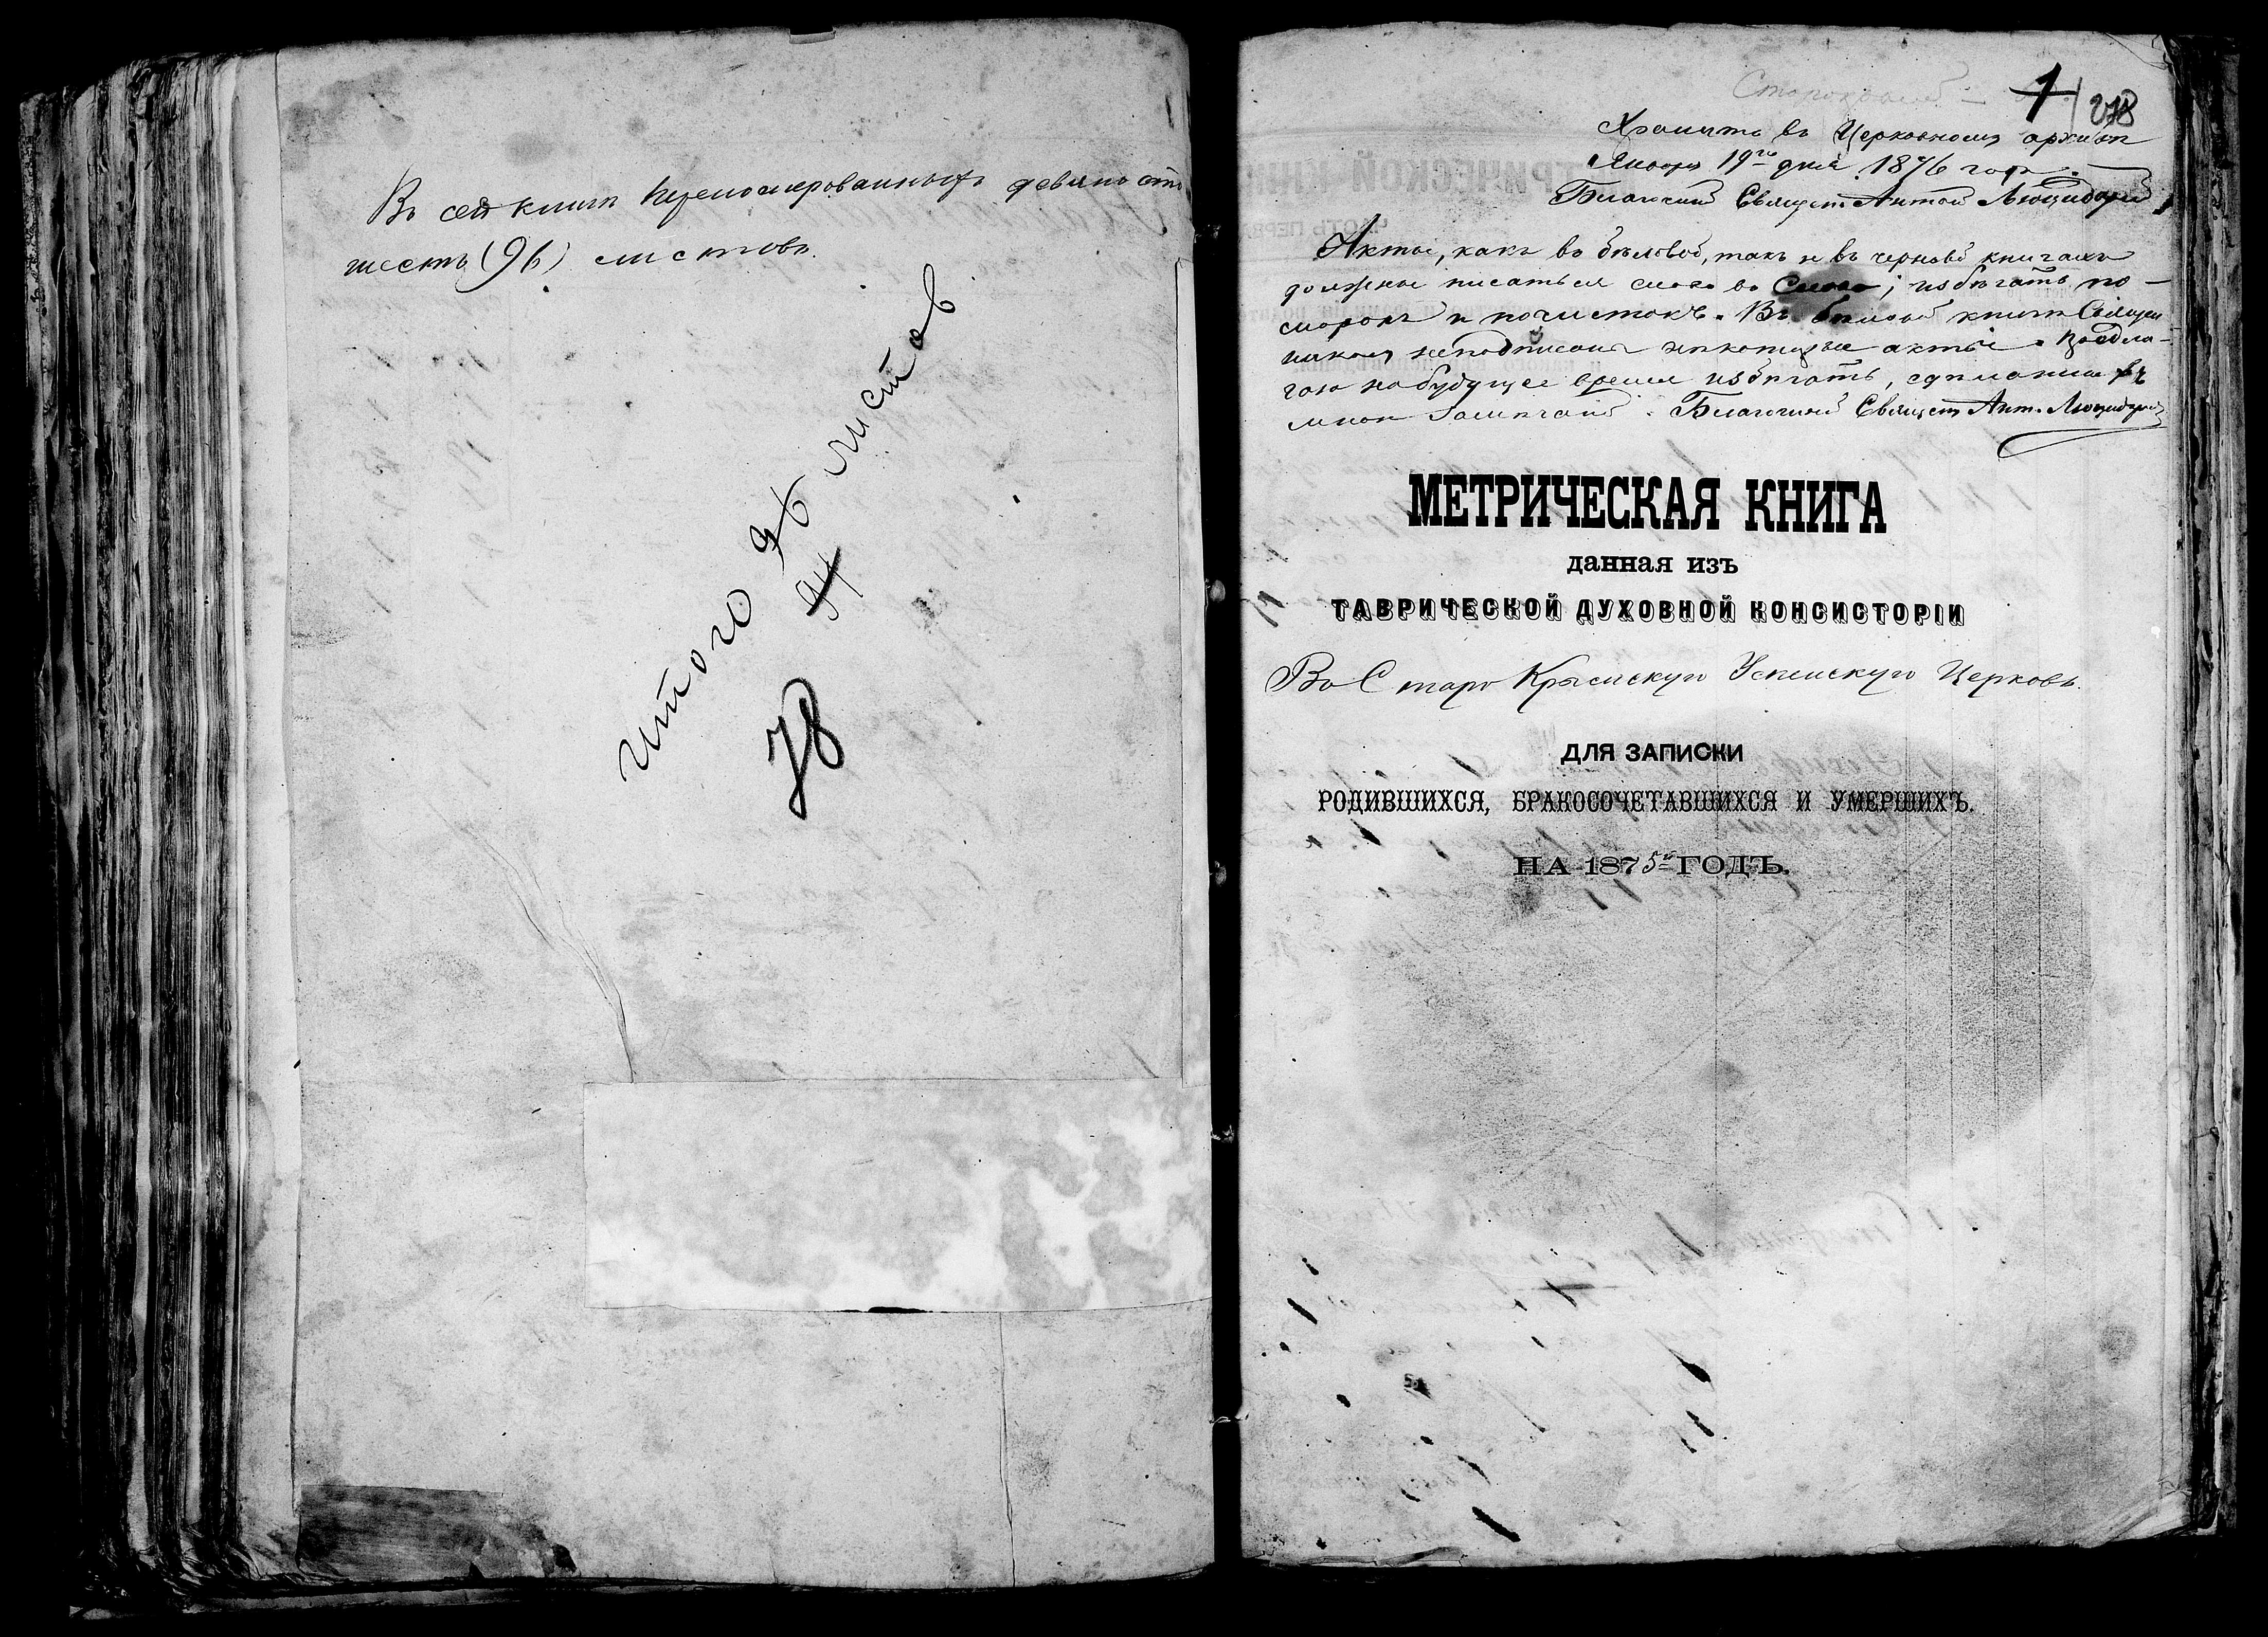 Въ сей книгѣ перемоцированныхъ девяносто
шесть (96) листовъ.
Итого 96 листов
94
78
1 278
Хранить въ Церковномъ архивѣ
Января 19го дня 1876 года.
Благочинный Священ. Антоній
Акты, какъ въ бѣловой, такъ и въ черновой книгахъ
должны писаться слово въ слово; избѣгать по-
морокъ и почистокъ. Въ бѣловой книгѣ Священ
никомъ неподписаны нѣкоторые акты. Предла-
гаю на будущее время избѣгать, сдѣланныя
мною замѣчаній. Благочинный Священ Ант.
МЕТРИЧЕСКАЯ КНИГА
данная изъ
ТАВРИЧЕСКОЙ ДУХОВНОЙ КОНСИСТОРІИ
Въ Старо Крымскую Успенскую Церковь.
ДЛЯ ЗАПИСКИ
РОДИВШИХСЯ, БРАКОСОЧЕТАВШИХСЯ И УМЕРШИХЪ.
НА 1875й ГОДЪ.